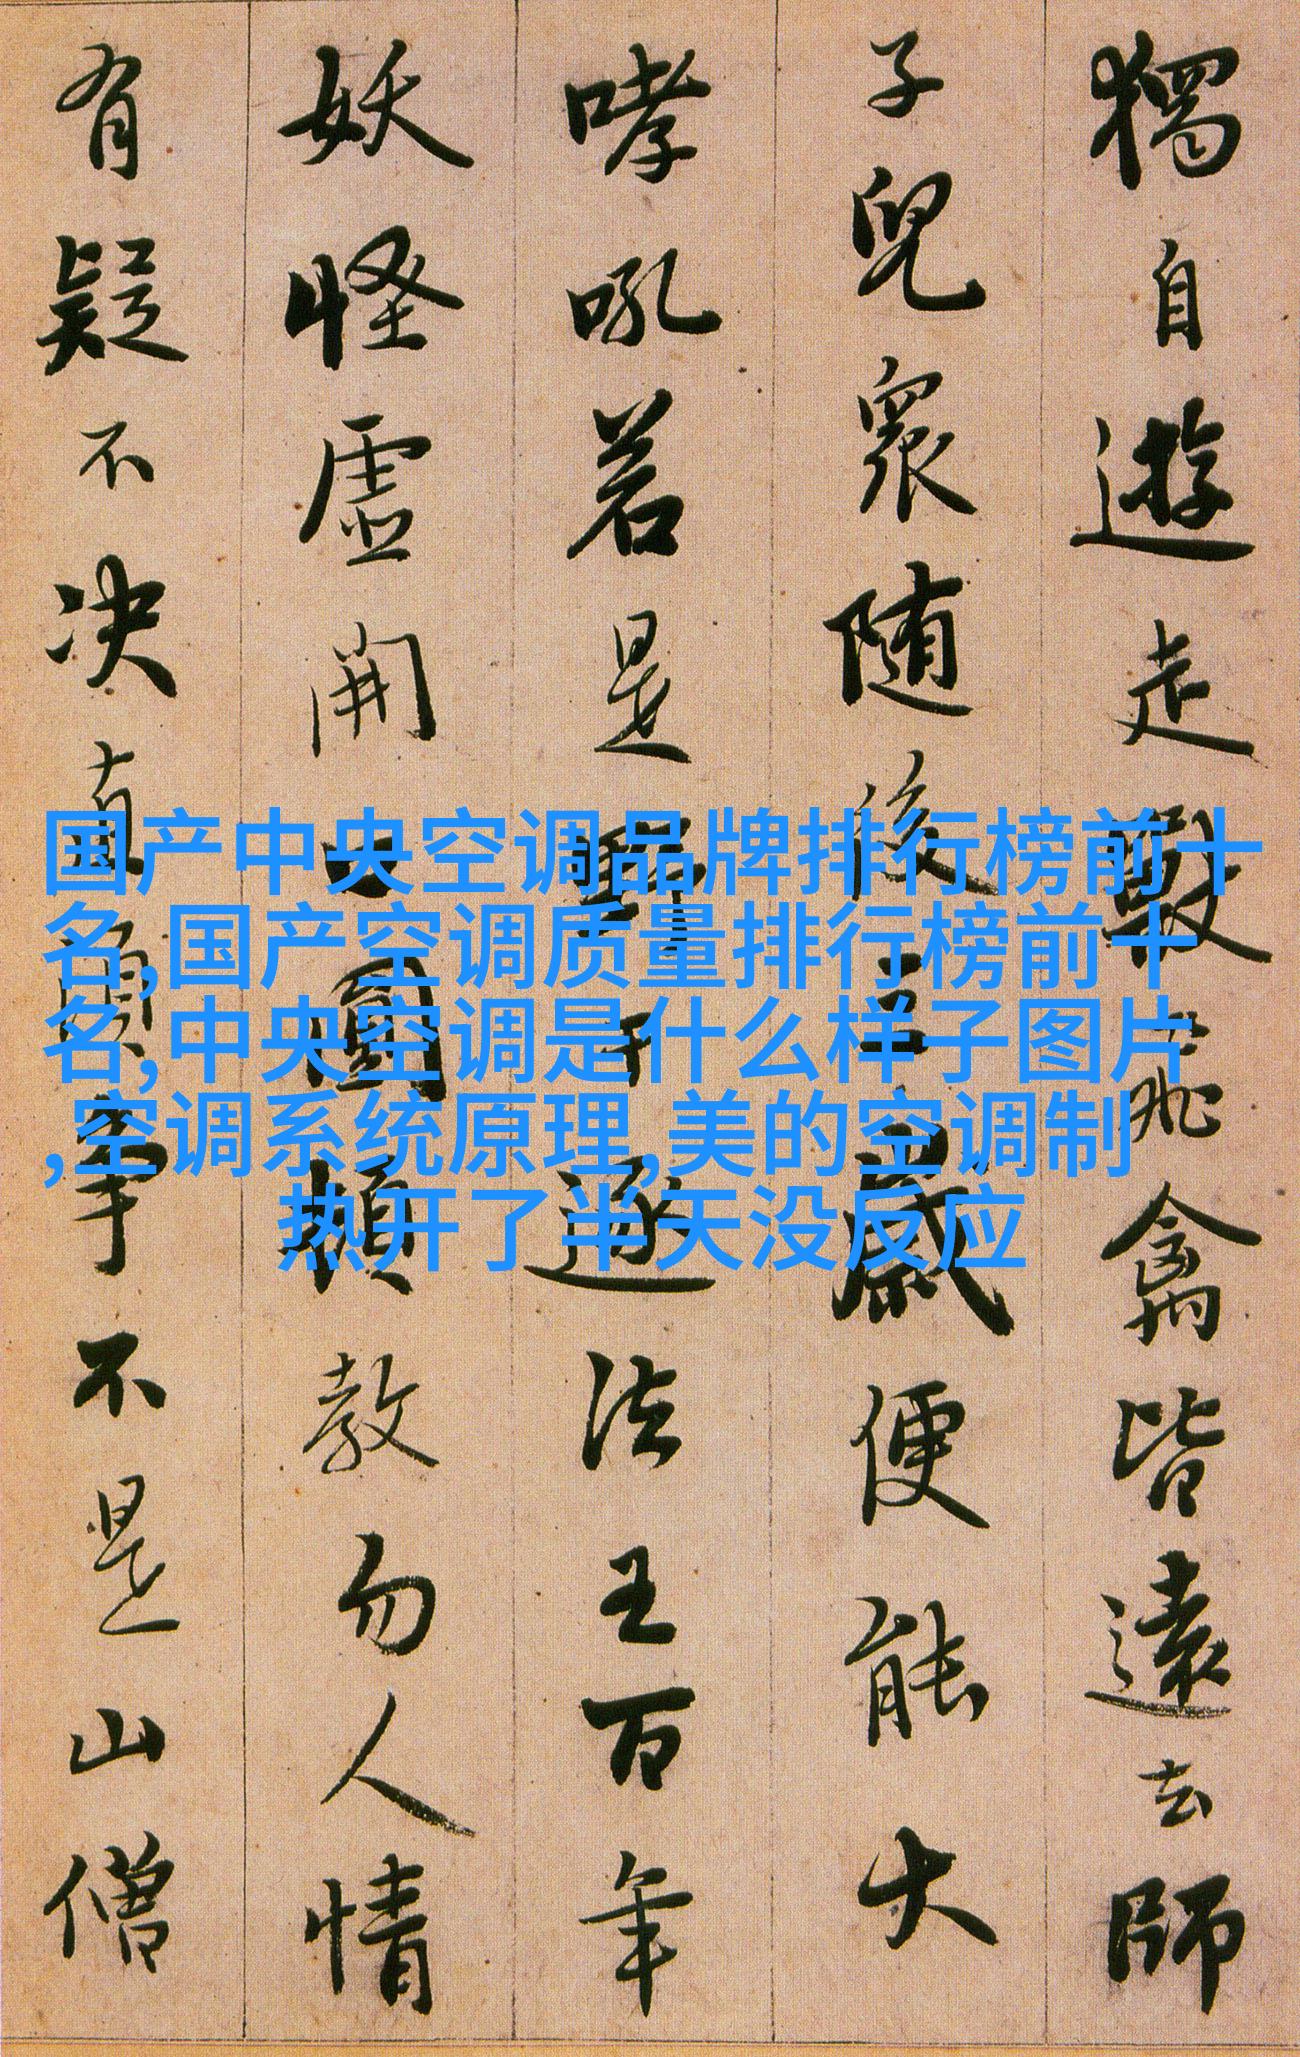 獨自遊走獸飛禽皆遠去師
子兒衆随後三歲便能大
哮吼若是野干逐法王百年
妖怪虛開口圓頓教勿人情
有疑不決直須爭不是山僧
国产中央空调品牌排行榜前十
名,国产空调质量排行榜前十
名,中央空调是什么样子图片
,空调系统原理,美的空调制
热开了半天没反应